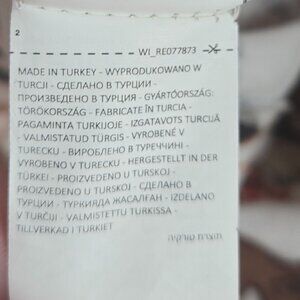 2
WI_RE077873
MADE IN TURKEY - WYPRODUKOWANO W
TURCJI - СДЕЛАНО В ТУРЦИИ -
ПРОИЗВЕДЕНО В ТУРЦИЯ - GYÁRTÓORSZÁG:
TÖRÖKORSZÁG - FABRICATE ÎN TURCIA -
PAGAMINTA TURKIJOJE - IZGATAVOTS TURCIJĀ
- VALMISTATUD TÜRGIS - VYROBENÉ V
TURECKU - ВИРОБЛЕНО В ТУРЕЧЧИНІ -
VYROBENO V TURECKU - HERGESTELLT IN DER
TÜRKEI - PROIZVEDENO U TURSKOJ -
PROIZVEDENO U TURSKOJ - СДЕЛАНО В
ТУРЦИИ - ТУРКИЯДА ЖАСАЛҒАН - IZDELANO
V TURČIJI - VALMISTETTU TURKISSA -
TILLVERKAD I TURKIET
תוצרת טורקיה